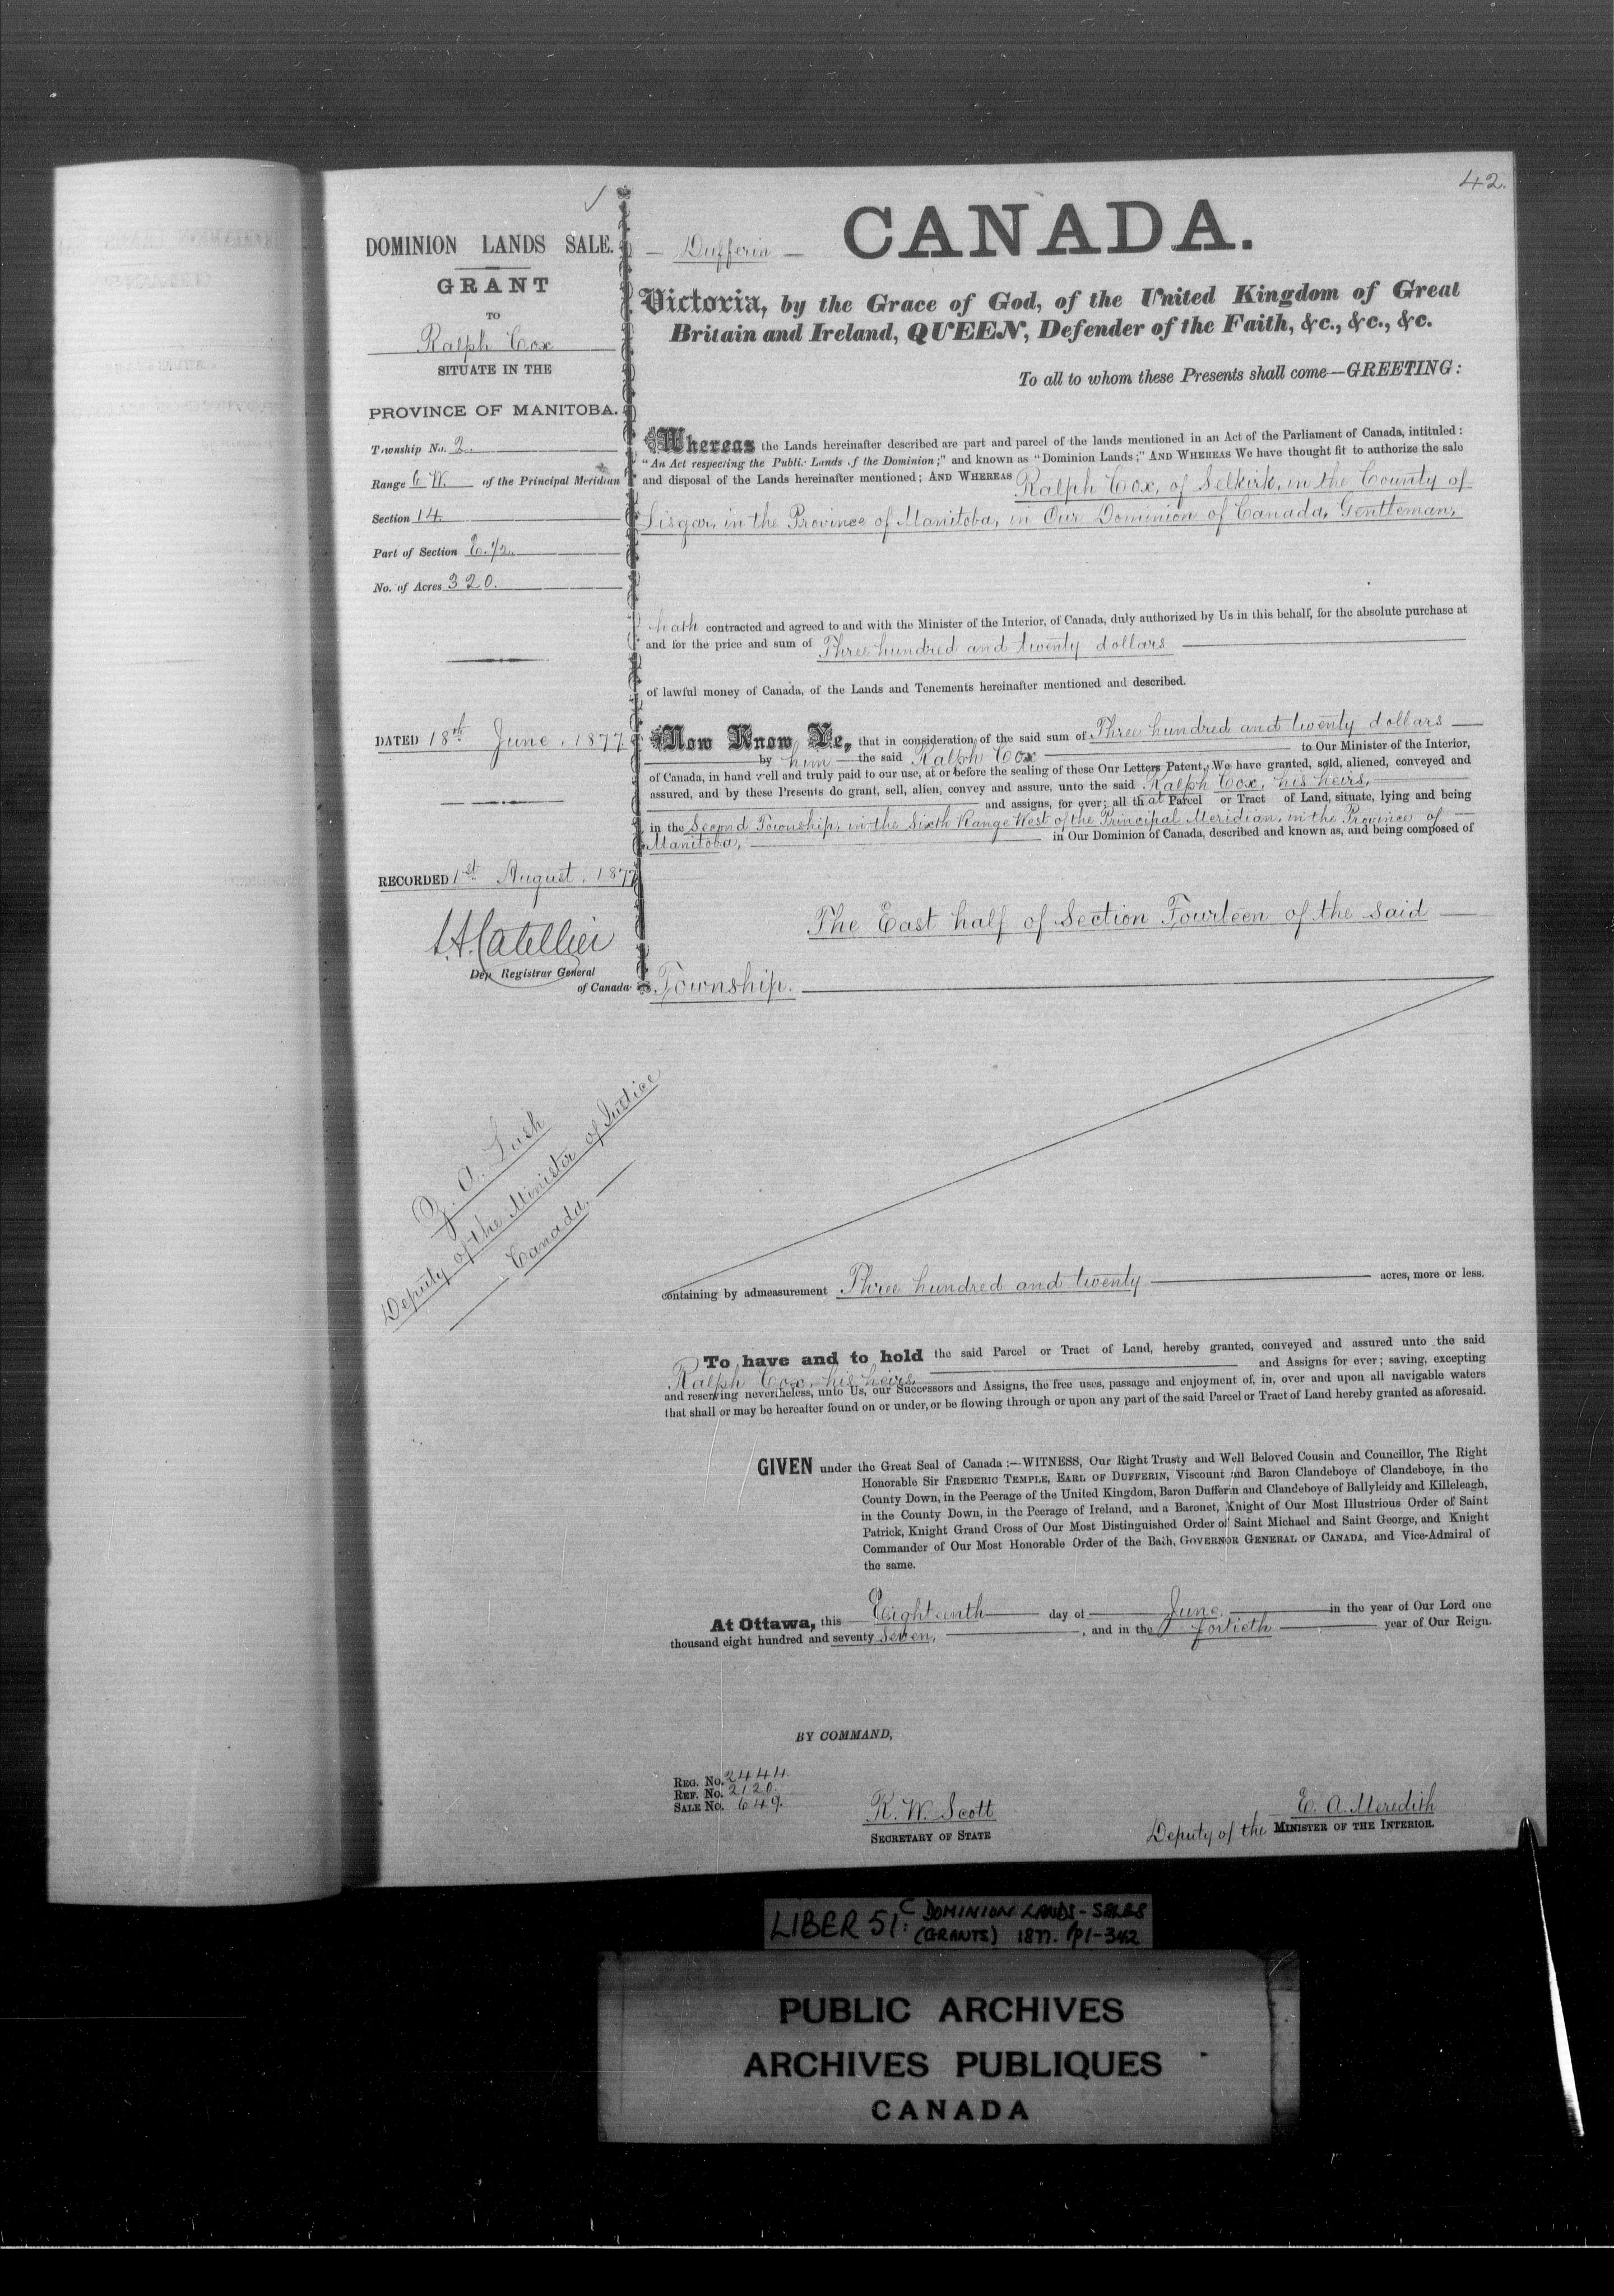 42.
DOMINION LANDS SALE.
GRANT
TO
Ralph Cox
SITUATE IN THE
PROVINCE OF MANITOBA.
Township No. 2.
Range 6 W. of the Principal Meridian
Section 14
Part of Section E. 1/2.
No. of Acres 320.
DATED 18th June, 1877
RECORDED 1st August, 1877
L.A. Catellier
Dep Registrar General
of Canada
Z. A. Lash
Deputy of the Minister of Justice
Canada.
— Dufferin — CANADA.
Victoria, by the Grace of God, of the United Kingdom of Great
Britain and Ireland, QUEEN, Defender of the Faith, &c., &c., &c.
To all to whom these Presents shall come—GREETING:
Whereas the Lands hereinafter described are part and parcel of the lands mentioned in an Act of the Parliament of Canada, intituled:
"An Act respecting the Public Lands of the Dominion;" and known as "Dominion Lands;" AND WHEREAS We have thought fit to authorize the sale
and disposal of the Lands hereinafter mentioned; AND WHEREAS Ralph Cox, of Selkirk, in the County of
Lisgar, in the Province of Manitoba, in Our Dominion of Canada, Gentleman,
hath contracted and agreed to and with the Minister of the Interior, of Canada, duly authorized by Us in this behalf, for the absolute purchase at
and for the price and sum of Three hundred and twenty dollars
of lawful money of Canada, of the Lands and Tenements hereinafter mentioned and described.
Now Know Ye, that in consideration of the said sum of Three hundred and twenty dollars
by him the said Ralph Cox to Our Minister of the Interior,
of Canada, in hand well and truly paid to our use, at or before the sealing of these Our Letters Patent, We have granted, sold, aliened, conveyed and
assured, and by these Presents do grant, sell, alien, convey and assure, unto the said Ralph Cox, his heirs,
and assigns, for ever; all that Parcel or Tract of Land, situate, lying and being
in the Second Township, in the Sixth Range West of the Principal Meridian, in the Province of
Manitoba, in Our Dominion of Canada, described and known as, and being composed of
The East half of Section Fourteen of the said
Township.
containing by admeasurement Three hundred and twenty acres, more or less.
To have and to hold the said Parcel or Tract of Land, hereby granted, conveyed and assured unto the said
Ralph Cox, his heirs and Assigns for ever; saving, excepting
and reserving nevertheless, unto Us, our Successors and Assigns, the free uses, passage and enjoyment of, in, over and upon all navigable waters
that shall or may be hereafter found on or under, or be flowing through or upon any part of the said Parcel or Tract of Land hereby granted as aforesaid.
GIVEN under the Great Seal of Canada:—WITNESS, Our Right Trusty and Well Beloved Cousin and Councillor, The Right
Honorable Sir FREDERIC TEMPLE, EARL OF DUFFERIN, Viscount and Baron Clandeboye of Clandeboye, in the
County Down, in the Peerage of the United Kingdom, Baron Dufferin and Clandeboye of Ballyleidy and Killeleagh,
in the County Down, in the Peerage of Ireland, and a Baronet, Knight of Our Most Illustrious Order of Saint
Patrick, Knight Grand Cross of Our Most Distinguished Order of Saint Michael and Saint George, and Knight
Commander of Our Most Honorable Order of the Bath, GOVERNOR GENERAL OF CANADA, and Vice-Admiral of
the same.
At Ottawa, this Eighteenth day of June, in the year of Our Lord one
thousand eight hundred and seventy seven, , and in the fortieth year of Our Reign.
BY COMMAND,
REG. No. 2444.
REF. No. 2120.
SALE No. 649.
R. W. Scott
SECRETARY OF STATE
E. A. Meredith
Deputy of the MINISTER OF THE INTERIOR.
LIBER 51C: DOMINION LANDS - SALES
(GRANTS) 1877. Pp 1-342
PUBLIC ARCHIVES
ARCHIVES PUBLIQUES
CANADA